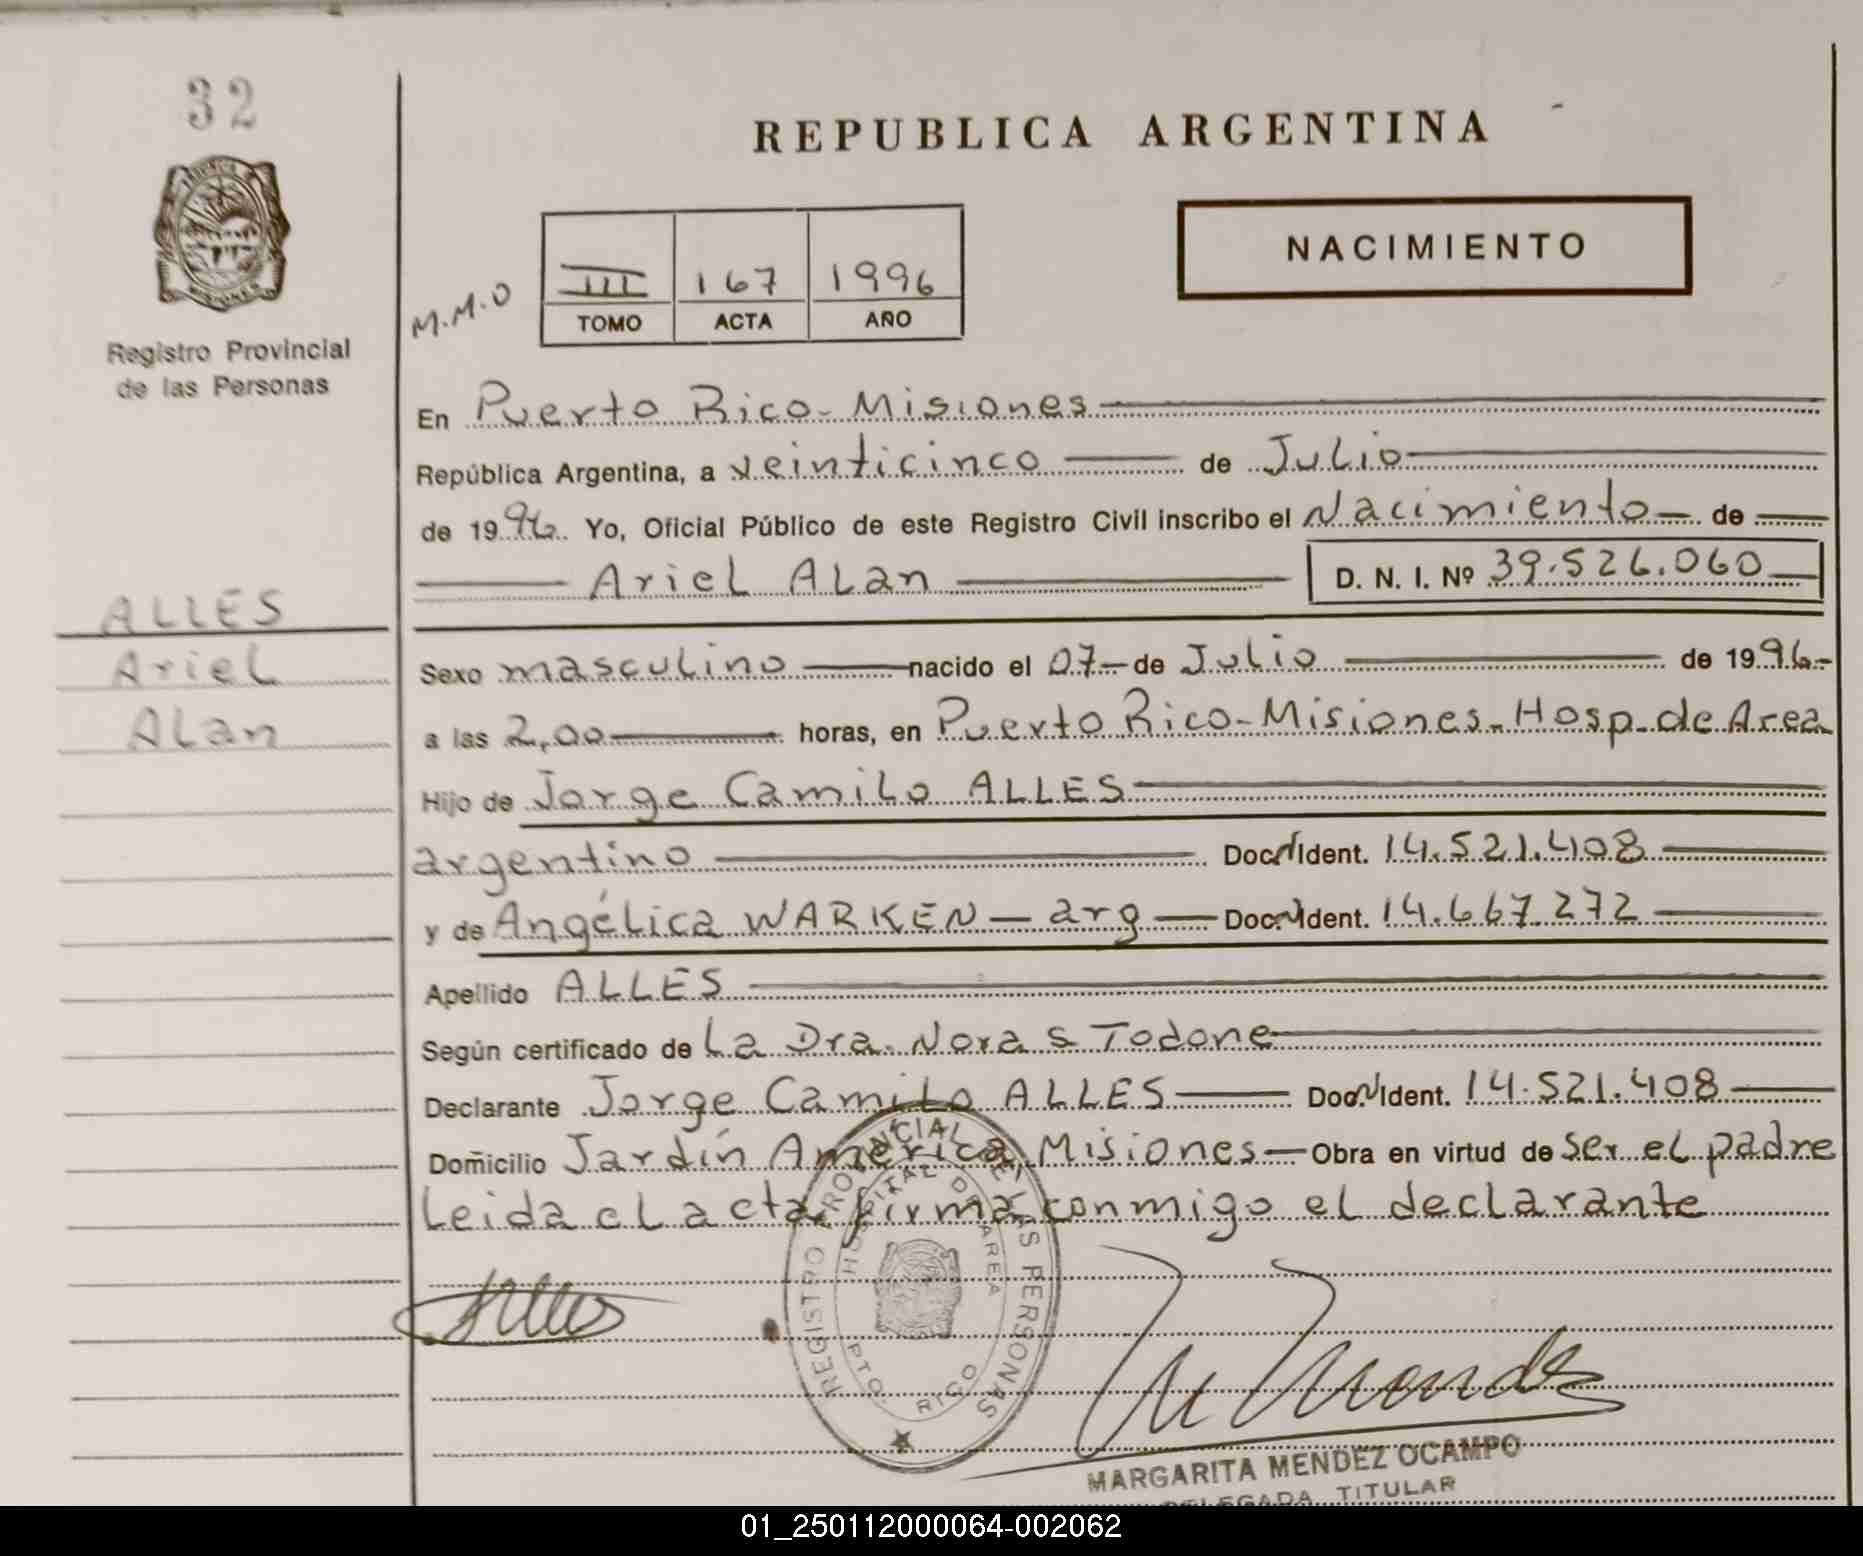 32
REPUBLICA ARGENTINA
NACIMIENTO
M.M.O
III 167 1996
TOMO ACTA AÑO
MISIONES
Registro Provincial
de las Personas
En Puerto Rico - Misiones
República Argentina, a veinticinco de Julio
de 1996. Yo, Oficial Público de este Registro Civil inscribo el Nacimiento de
Ariel Alan D. N. I. Nº 39.526.060
ALLES
Ariel
Alan
Sexo masculino nacido el 07 de Julio de 1996
a las 2,00 horas, en Puerto Rico - Misiones - Hosp. de Area
Hijo de Jorge Camilo ALLES
argentino Doc. N Ident. 14.521.408
y de Angélica WARKEN - arg - Doc. N Ident. 14.667.272
Apellido ALLES
Según certificado de La Dra. Nora S Todone
Declarante Jorge Camilo ALLES Doc. N Ident. 14.521.408
Domicilio Jardín América Misiones - Obra en virtud de ser el padre
Leida el acta, firma conmigo el declarante
Alles
REGISTRO PROVINCIAL DE LAS PERSONAS
HOSPITAL DE AREA
PTO. RICO
M Mendez
MARGARITA MENDEZ OCAMPO
DELEGADA TITULAR
01_250112000064-002062